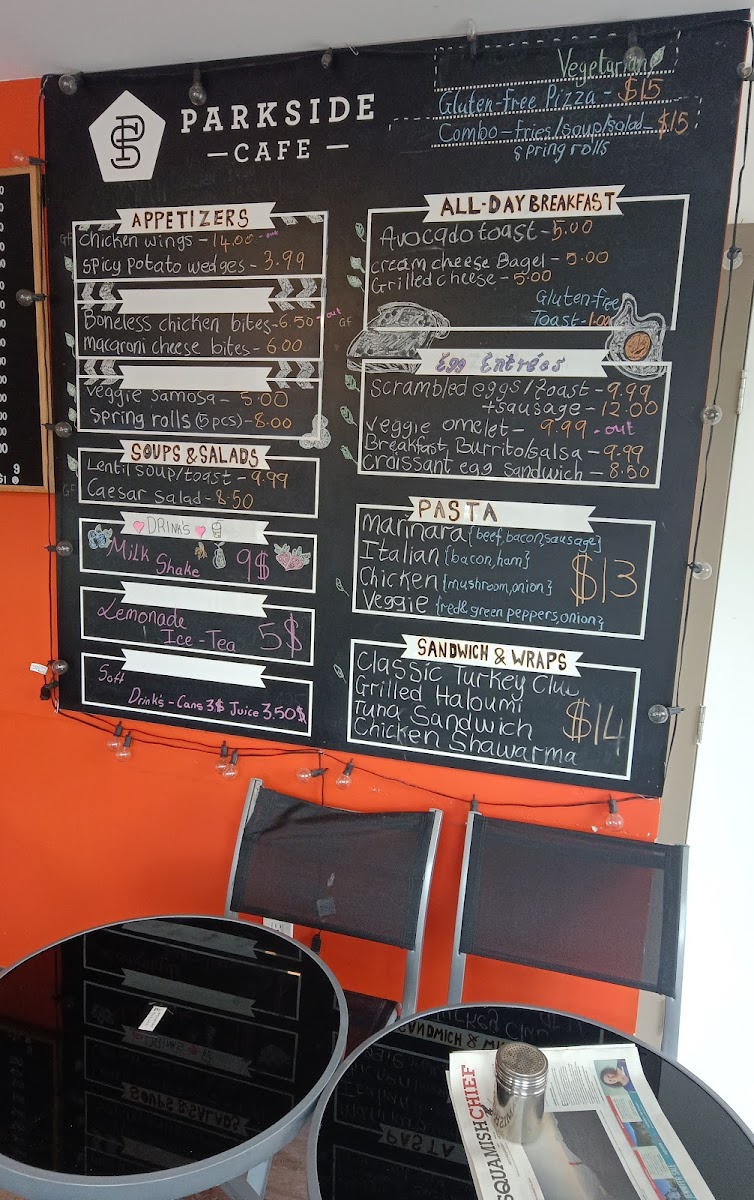 PS
PARKSIDE
— CAFE —
Vegetarian
Gluten-Free Pizza - $15
Combo - fries/soup/salad $15
spring rolls
APPETIZERS
GF chicken wings - 14.00 - out
spicy potato wedges - 3.99
Boneless chicken bites - 6.50 - out GF
macaroni cheese bites - 6.00
veggie samosa - 5.00
Spring rolls (5 pcs) - 8.00
SOUPS & SALADS
Lentil soup/toast - 9.99
GF Caesar salad - 8.50
DRINK'S
Milk
Shake 9$
Lemonade
Ice-Tea 5$
Soft
Drink's - Cans 3$ Juice 3.50$
ALL-DAY BREAKFAST
Avocado toast - 5.00
cream cheese Bagel - 5.00
Grilled cheese - 5.00
Gluten-free
Toast - 1.00
Egg Entrées
scrambled eggs/toast - 9.99
+ sausage - 12.00
veggie omelet - 9.99 - out
Breakfast Burrito/salsa - 9.99
Croissant egg sandwich - 8.50
PASTA
Marinara {beef, bacon, sausage}
Italian {bacon, ham}
Chicken {mushroom, onion}
Veggie {red & green peppers, onion}
$13
SANDWICH & WRAPS
Classic Turkey Clu
Grilled Haloumi
Tuna Sandwich
Chicken Shawarma
$14
9
SQUAMISHCHIEF